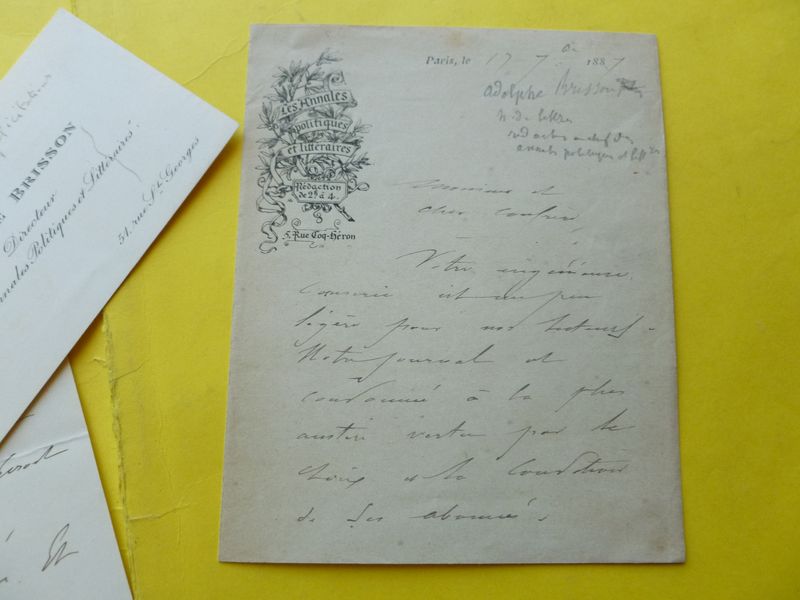 BRISSON
Directeur
Annales Politiques et Littéraires
51. rue St. Georges
Les Annales
politiques
et littéraires
Rédaction
de 2h à 4.
5. Rue Coq-Héron
Paris, le 17 7 1887
Adolphe Brisson
h. de lettres
annales politiques et litt
Monsieur et
cher confrère,
Votre ingénieuse
causerie est un peu
légère pour nos lecteurs.
Notre journal est
condamné à la plus
austère vertu par le
choix et la condition
de ses abonnés.
Et